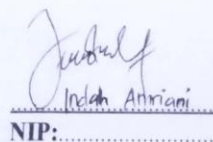 Indah Anriani
NIP: